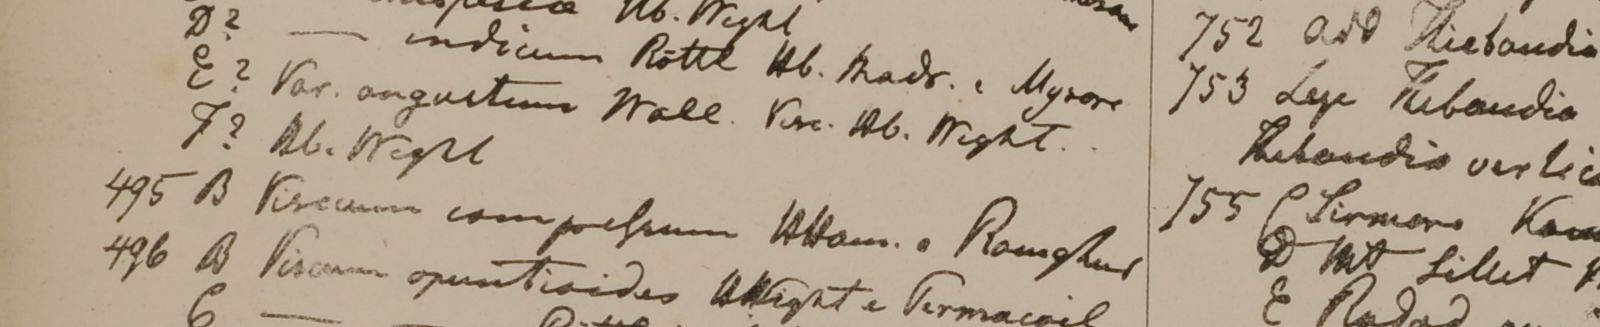 Hb. Wight
D? — indicum Rottl Hb. Madr. e Mysore
E? Var. angustum Wall. Visc. Hb. Wight.
F? Hb. Wight
495 B Viscum compressum HHam. e Ramghur
496 B Viscum opuntioides HWight e
C —
752 add Thiebaudia
753 Lege Thebaudia
Thebaudia vertic
755 C Sirmore
D Mt Sillet
E